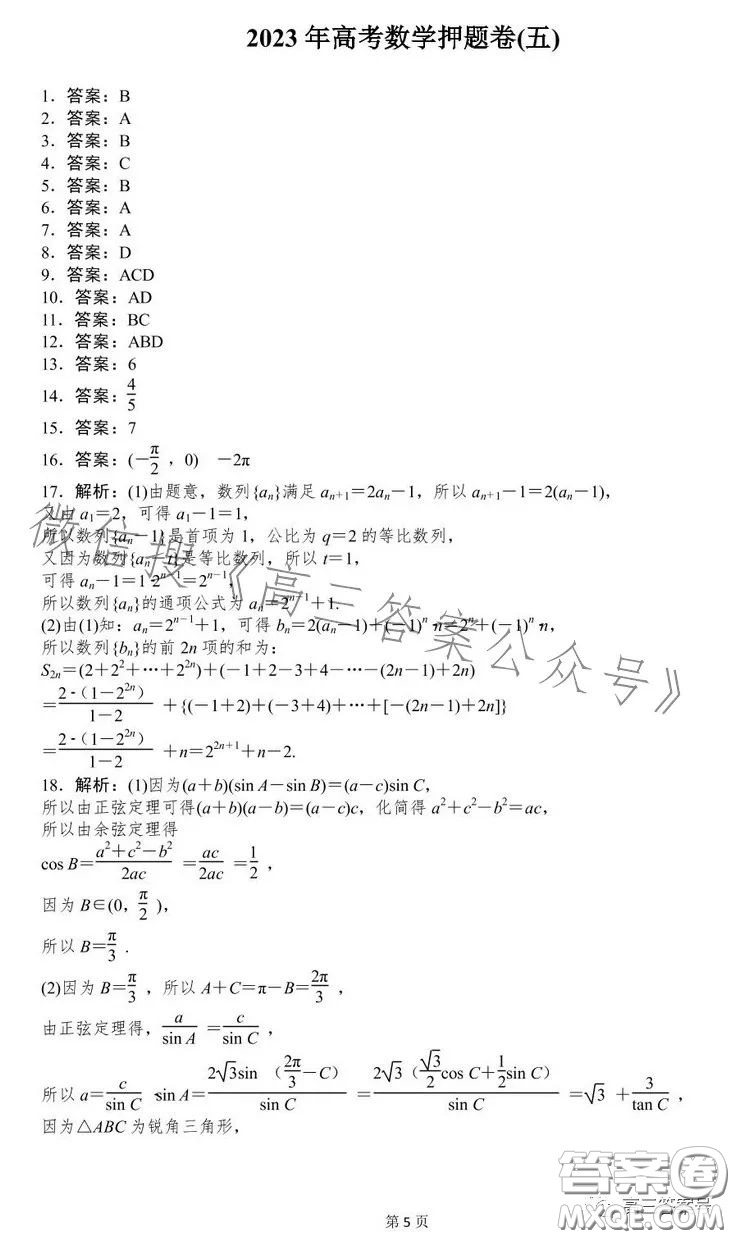 2023 年高考数学押题卷(五)
1．答案：B
2．答案：A
3．答案：B
4．答案：C
5．答案：B
6．答案：A
7．答案：A
8．答案：D
9．答案：ACD
10．答案：AD
11．答案：BC
12．答案：ABD
13．答案：6
14．答案：4/5
15．答案：7
16．答案：(－π/2 ，0)　－2π
17．解析：(1)由题意，数列{aₙ}满足 aₙ₊₁＝2aₙ－1，所以 aₙ₊₁－1＝2(aₙ－1)，
又由 a₁＝2，可得 a₁－1＝1，
所以数列{aₙ－1}是首项为 1，公比为 q＝2 的等比数列，
又因为数列{aₙ－t}是等比数列，所以 t＝1，
可得 aₙ－1＝1·2ⁿ⁻¹＝2ⁿ⁻¹，
所以数列{aₙ}的通项公式为 aₙ＝2ⁿ⁻¹＋1.
(2)由(1)知：aₙ＝2ⁿ⁻¹＋1，可得 bₙ＝2(aₙ－1)＋(－1)ⁿ·n＝2ⁿ＋(－1)ⁿ·n，
所以数列{bₙ}的前 2n 项的和为：
S₂ₙ＝(2＋2²＋…＋2²ⁿ)＋(－1＋2－3＋4－…－(2n－1)＋2n)
＝2·（1－2²ⁿ）/(1－2) ＋{(－1＋2)＋(－3＋4)＋…＋[－(2n－1)＋2n]}
＝2·（1－2²ⁿ）/(1－2) ＋n＝2²ⁿ⁺¹＋n－2.
18．解析：(1)因为(a＋b)(sin A－sin B)＝(a－c)sin C，
所以由正弦定理可得(a＋b)(a－b)＝(a－c)c，化简得 a²＋c²－b²＝ac，
所以由余弦定理得
cos B＝(a²＋c²－b²)/2ac ＝ac/2ac ＝1/2 ，
因为 B∈(0，π/2 )，
所以 B＝π/3 .
(2)因为 B＝π/3 ，所以 A＋C＝π－B＝2π/3 ，
由正弦定理得，a/sin A ＝c/sin C ，
所以 a＝c/sin C ·sin A＝2√3sin （2π/3－C）/sin C ＝2√3（√3/2 cos C＋1/2 sin C）/sin C ＝√3 ＋3/tan C ，
因为△ABC 为锐角三角形，
微信搜《高三答案公众号》
答案卷
高三答案号
MXQE.COM
第 5 页